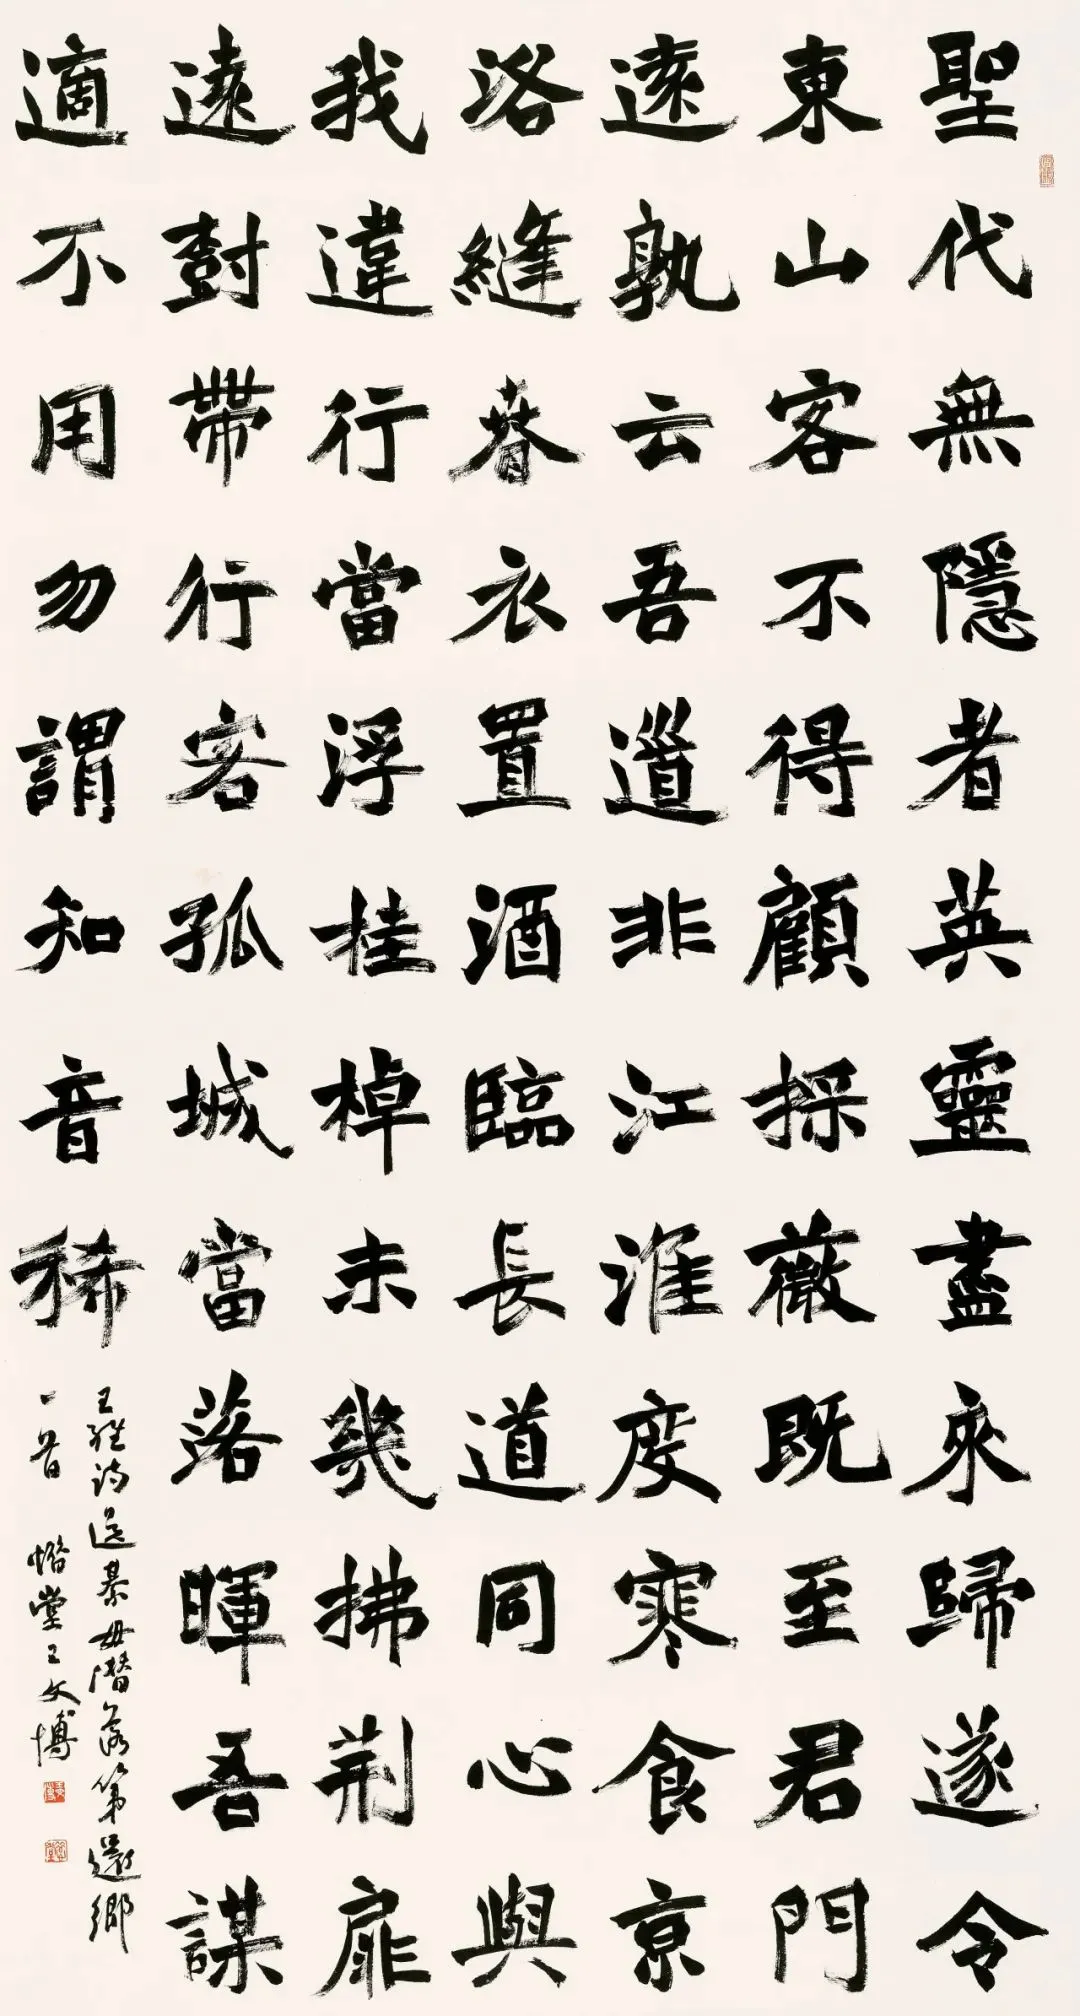 聖代無隱者英靈盡來歸遂令
東山客不得顧採薇既至君門
遠孰云吾道非江淮度寒食京
洛縫春衣置酒臨長道同心與
我違行當浮桂棹未幾拂荊扉
遠樹帶行客孤城當落暉吾謀
適不用勿謂知音稀
王維詩送綦毋潛落第還鄉
一首 堂王文博